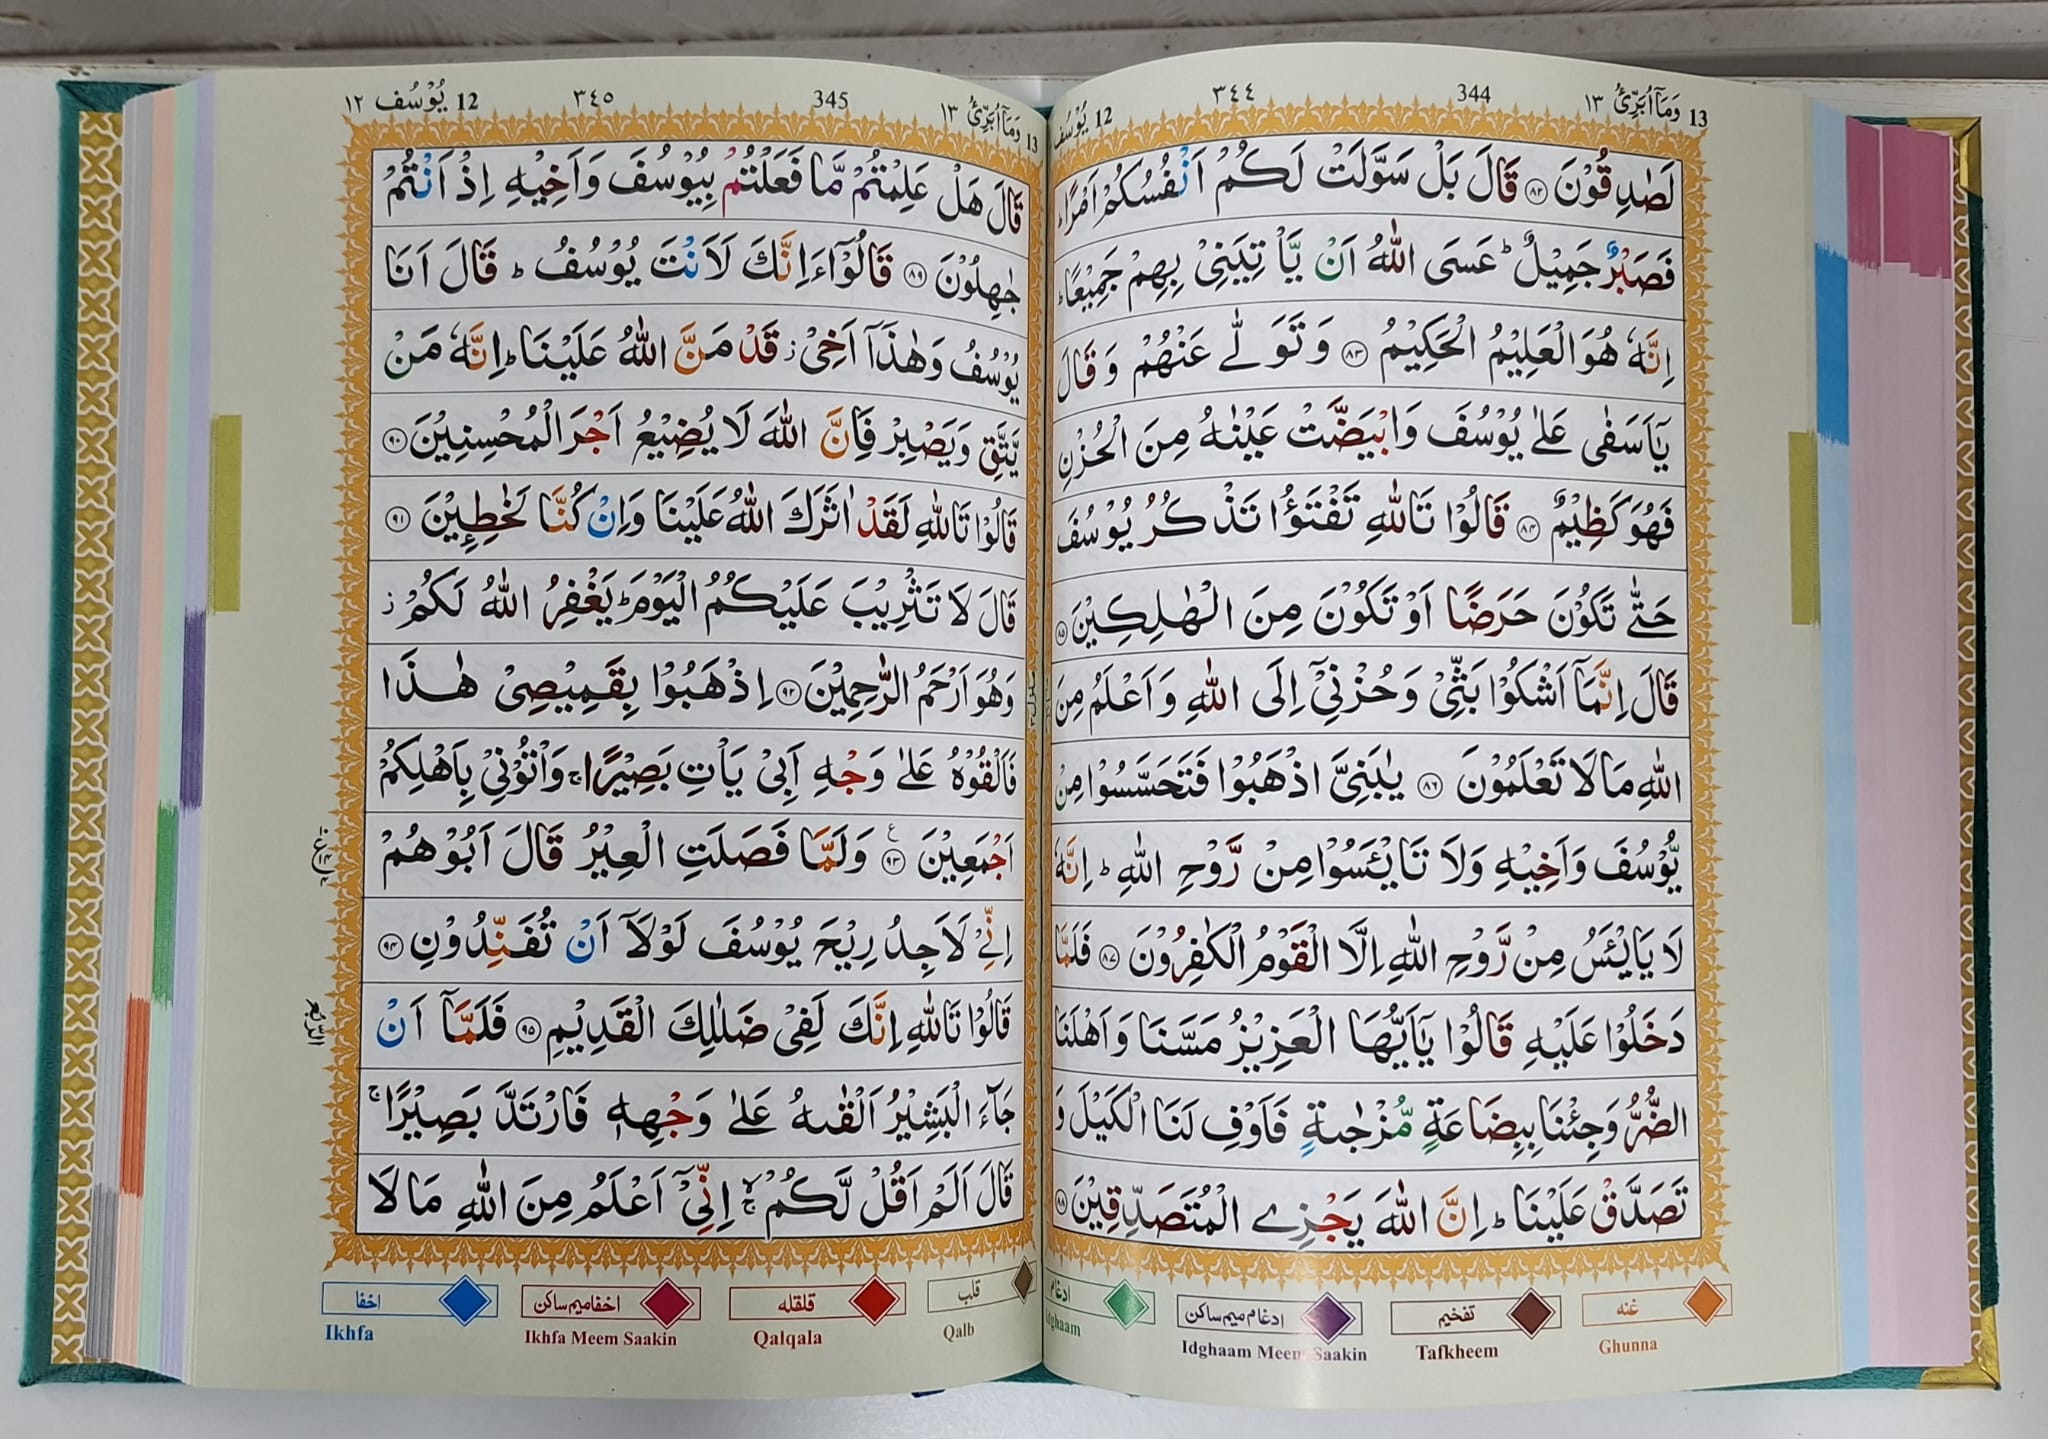 13 وَمَآ اُبَرِّئُ ١٣ 344 ٣٤٤ 12 يُوْسُف
لَصٰدِقُوْنَ ۝٨٢ قَالَ بَلْ سَوَّلَتْ لَكُمْ اَنْفُسُكُمْ اَمْرًا ؕ
فَصَبْرٌ جَمِيْلٌ ؕ عَسَى اللّٰهُ اَنْ يَّاْتِيَنِيْ بِهِمْ جَمِيْعًا ؕ
اِنَّهٗ هُوَ الْعَلِيْمُ الْحَكِيْمُ ۝٨٣ وَتَوَلّٰى عَنْهُمْ وَقَالَ
يٰۤاَسَفٰى عَلٰى يُوْسُفَ وَابْيَضَّتْ عَيْنٰهُ مِنَ الْحُزْنِ
فَهُوَ كَظِيْمٌ ۝٨٤ قَالُوْا تَاللّٰهِ تَفْتَؤُا تَذْكُرُ يُوْسُفَ
حَتّٰى تَكُوْنَ حَرَضًا اَوْ تَكُوْنَ مِنَ الْهٰلِكِيْنَ ۝٨٥
قَالَ اِنَّمَاۤ اَشْكُوْا بَثِّيْ وَحُزْنِيْۤ اِلَى اللّٰهِ وَاَعْلَمُ مِنَ
اللّٰهِ مَا لَا تَعْلَمُوْنَ ۝٨٦ يٰبَنِيَّ اذْهَبُوْا فَتَحَسَّسُوْا مِنْ
يُّوْسُفَ وَاَخِيْهِ وَلَا تَايْـَٔسُوْا مِنْ رَّوْحِ اللّٰهِ ؕ اِنَّهٗ
لَا يَايْـَٔسُ مِنْ رَّوْحِ اللّٰهِ اِلَّا الْقَوْمُ الْكٰفِرُوْنَ ۝٨٧ فَلَمَّا
دَخَلُوْا عَلَيْهِ قَالُوْا يٰۤاَيُّهَا الْعَزِيْزُ مَسَّنَا وَاَهْلَنَا
الضُّرُّ وَجِئْنَا بِبِضَاعَةٍ مُّزْجٰىةٍ فَاَوْفِ لَنَا الْكَيْلَ وَ
تَصَدَّقْ عَلَيْنَا ؕ اِنَّ اللّٰهَ يَجْزِي الْمُتَصَدِّقِيْنَ ۝٨٨
غنه تفخيم ادغام ميم ساكن ادغام
Ghunna Tafkheem Idghaam Meem Saakin
13 وَمَآ اُبَرِّئُ ١٣ 345 ٣٤٥ 12 يُوْسُف ١٢
قَالَ هَلْ عَلِمْتُمْ مَّا فَعَلْتُمْ بِيُوْسُفَ وَاَخِيْهِ اِذْ اَنْتُمْ
جٰهِلُوْنَ ۝٨٩ قَالُوْۤا ءَاِنَّكَ لَاَنْتَ يُوْسُفُ ؕ قَالَ اَنَا
يُوْسُفُ وَهٰذَاۤ اَخِيْ ز قَدْ مَنَّ اللّٰهُ عَلَيْنَا ؕ اِنَّهٗ مَنْ
يَّتَّقِ وَيَصْبِرْ فَاِنَّ اللّٰهَ لَا يُضِيْعُ اَجْرَ الْمُحْسِنِيْنَ ۝٩٠
قَالُوْا تَاللّٰهِ لَقَدْ اٰثَرَكَ اللّٰهُ عَلَيْنَا وَاِنْ كُنَّا لَخٰطِـِٕيْنَ ۝٩١
قَالَ لَا تَثْرِيْبَ عَلَيْكُمُ الْيَوْمَ ؕ يَغْفِرُ اللّٰهُ لَكُمْ ز
وَهُوَ اَرْحَمُ الرّٰحِمِيْنَ ۝٩٢ اِذْهَبُوْا بِقَمِيْصِيْ هٰذَا
فَاَلْقُوْهُ عَلٰى وَجْهِ اَبِيْ يَاْتِ بَصِيْرًا ۚ وَاْتُوْنِيْ بِاَهْلِكُمْ
اَجْمَعِيْنَ ۝٩٣ ع وَلَمَّا فَصَلَتِ الْعِيْرُ قَالَ اَبُوْهُمْ
اِنِّيْ لَاَجِدُ رِيْحَ يُوْسُفَ لَوْلَاۤ اَنْ تُفَنِّدُوْنِ ۝٩٤
قَالُوْا تَاللّٰهِ اِنَّكَ لَفِيْ ضَلٰلِكَ الْقَدِيْمِ ۝٩٥ فَلَمَّاۤ اَنْ
جَآءَ الْبَشِيْرُ اَلْقٰىهُ عَلٰى وَجْهِهٖ فَارْتَدَّ بَصِيْرًا ۚ
قَالَ اَلَمْ اَقُلْ لَّكُمْ ۚۙ اِنِّيْۤ اَعْلَمُ مِنَ اللّٰهِ مَا لَا
الربع
قلب قلقله اخفا ميم ساكن اخفا
Qalb Qalqala Ikhfa Meem Saakin Ikhfa